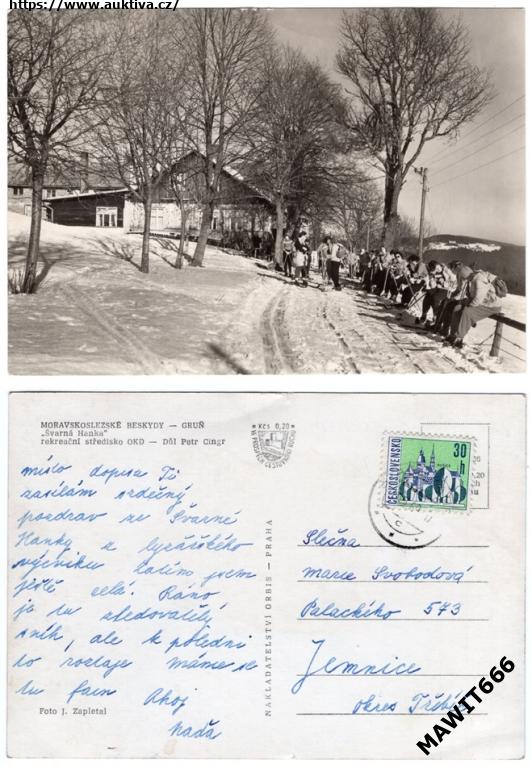 https://www.auktiva.cz/
MORAVSKOSLEZSKÉ BESKYDY — GRUŇ
„Švarná Hanka“
rekreační středisko OKD — Důl Petr Cingr
Kčs 0,20
místo dopisu Ti
zasílám srdečný
pozdrav ze Švarné
Hanky z lyžařského
výcviku zatím jsem
ještě celá. Ráno
je tu sledovatělý
sníh, ale k poledni
to roztaje Máme se
tu fajn Ahoj
Naďa
Foto J. Zapletal
NAKLADATELSTVÍ ORBIS — PRAHA
ČESKOSLOVENSKO
30 h
Slečna
Marie Svobodová
Palackého 573
Jemnice
okres Třebíč
MAWIT666